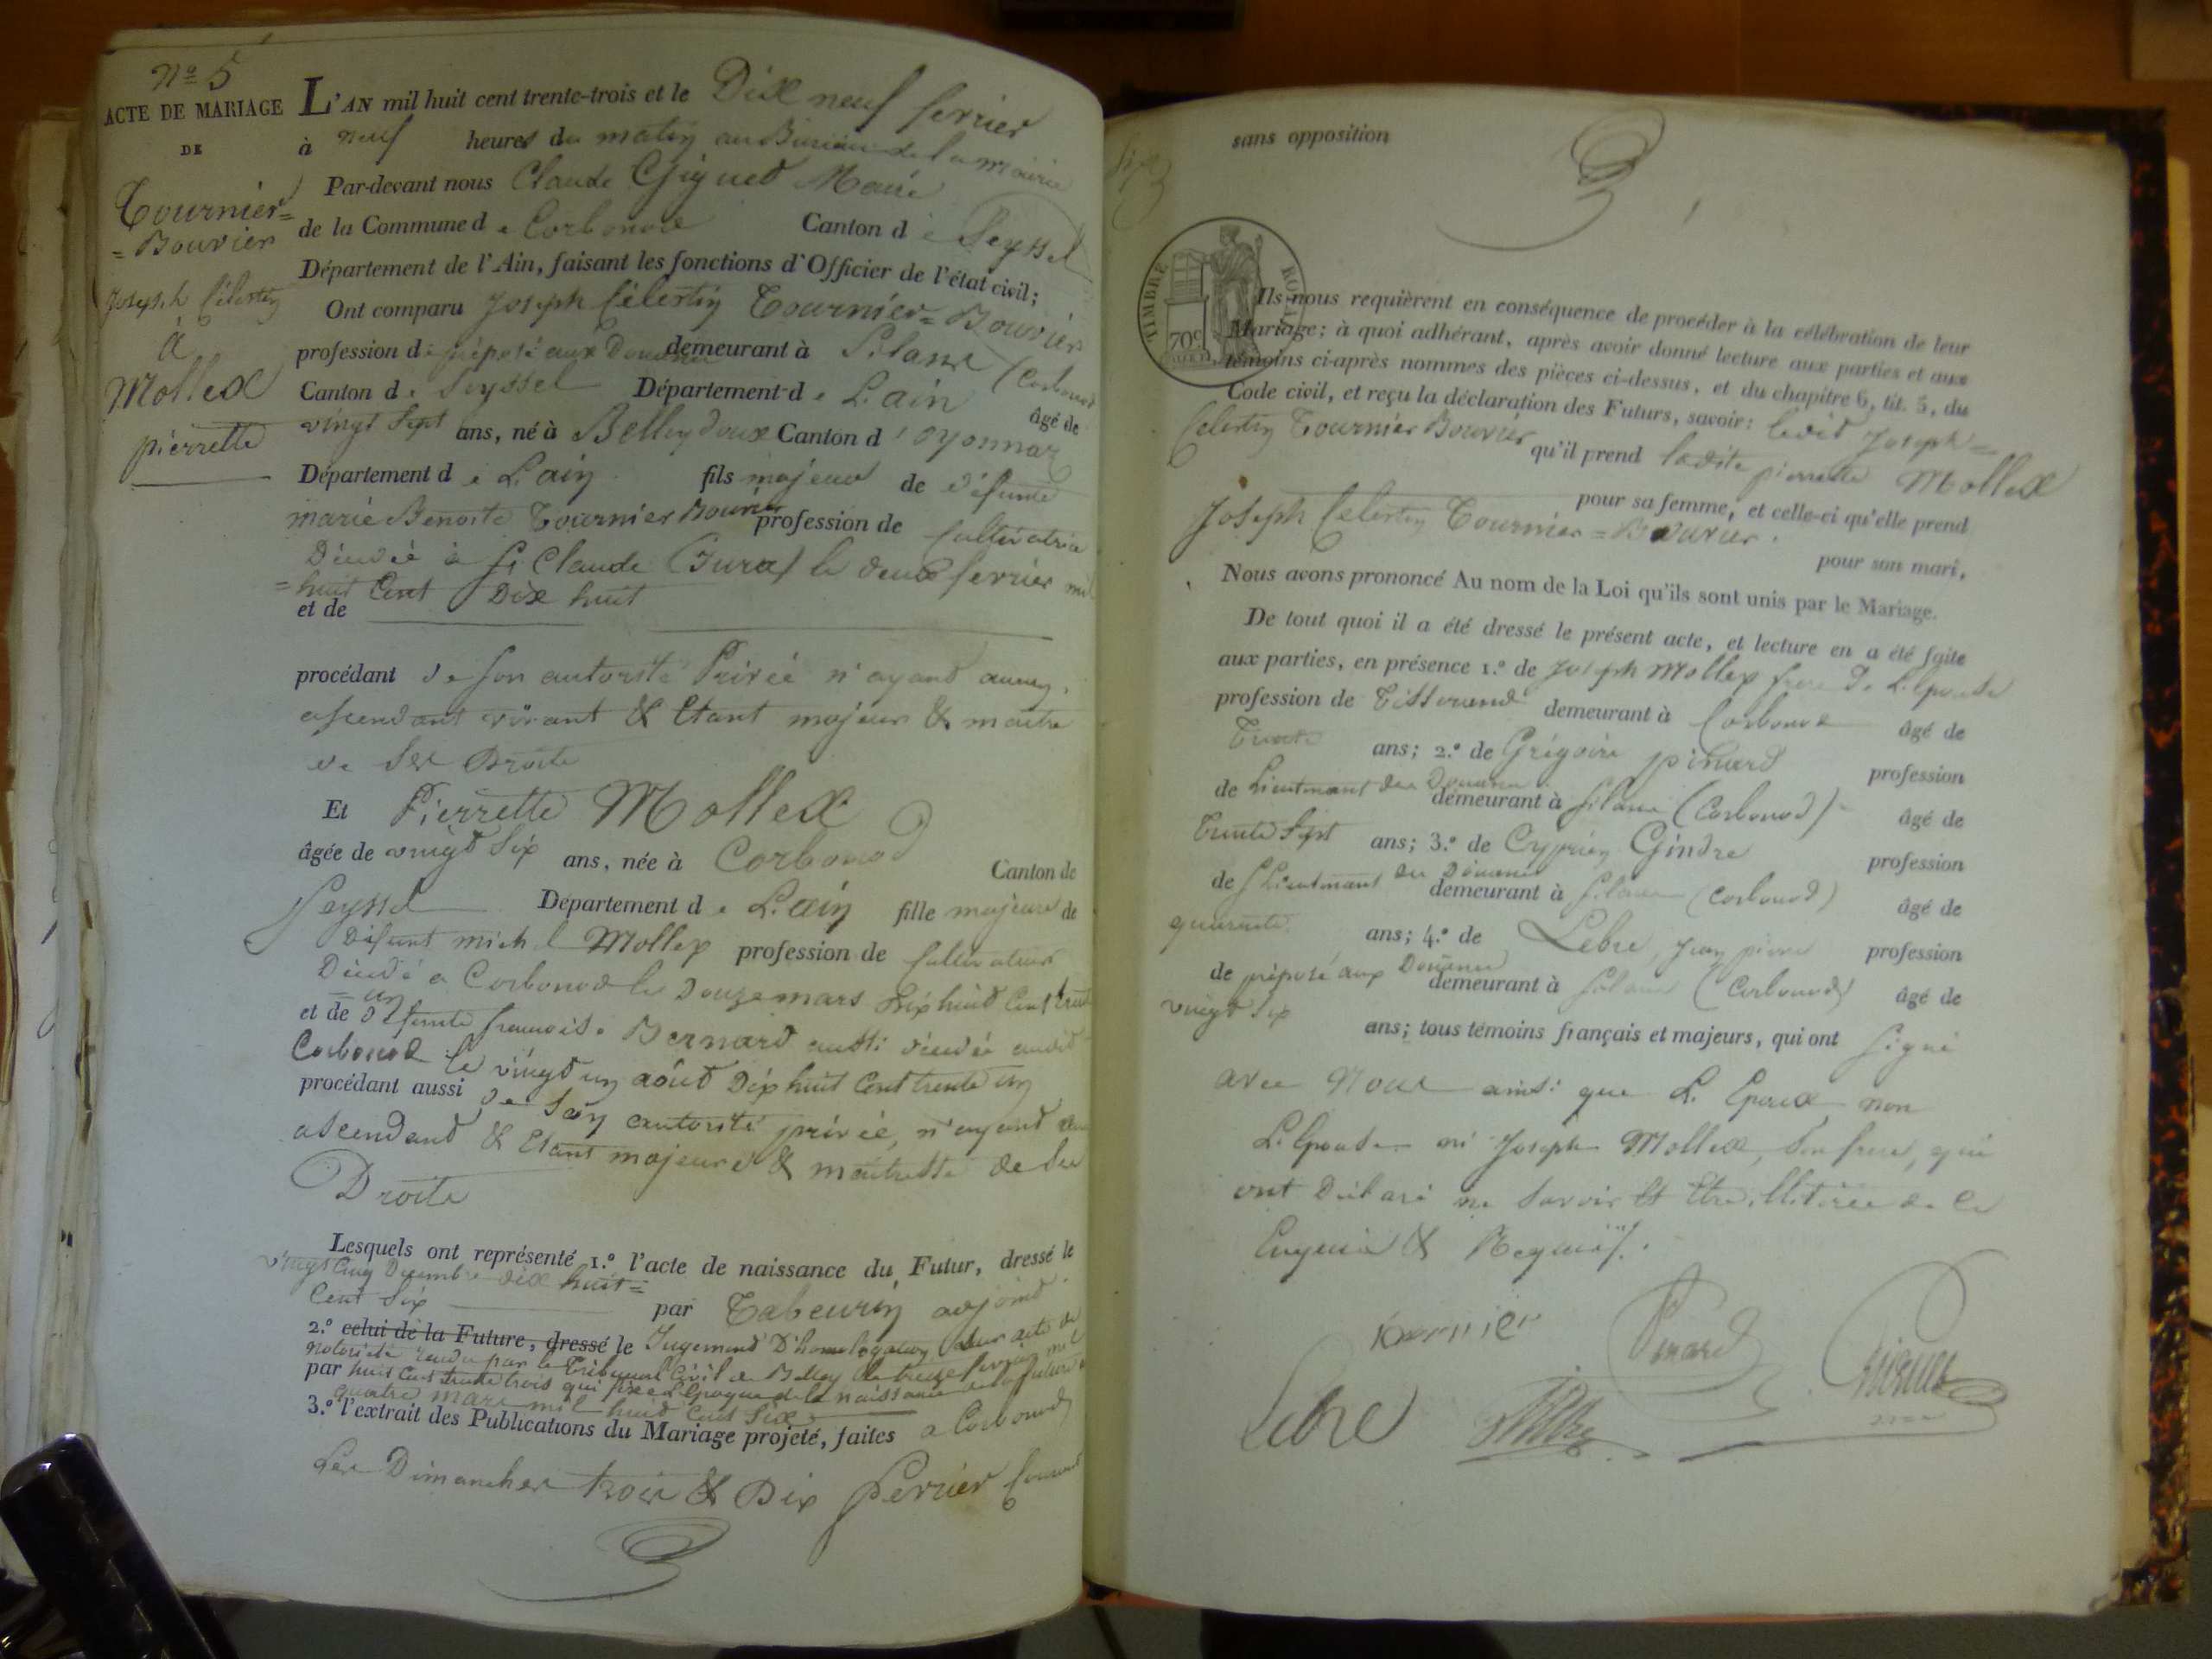 N.º 5
ACTE DE MARIAGE
DE
Tournier=
=Bouvier
Joseph Célestin
à
Mollex
pierrette
L'AN mil huit cent trente-trois et le Dix neuf fevrier
à neuf heures du matin au Bureau de la mairie
Par-devant nous Claude Giguet Maire
de la Commune de Corbonod Canton de Seyssel
Département de l'Ain, faisant les fonctions d'Officier de l'état civil;
Ont comparu Joseph Célestin Tournier=Bouvier
profession de préposé aux Douanes demeurant à Silans (Corbonod
Canton de Seyssel Département de L'ain âgé de
vingt Sept ans, né à Belleydoux Canton d'oyonnax
Département de L'ain fils majeur de défunte
marie Benoite Tournier Bouvier profession de Cultivatrice
Décédée à St Claude (Jura) le deux fevrier mil
=huit Cent Dix huit
et de
procédant de son autorité Privée n'ayant aucun
ascendant vivant & Etant majeur & maitre
de Ses Droits
Et Pierrette Mollex
âgée de vingt Six ans, née à Corbonod Canton de
Seyssel Département de L'ain fille majeure de
Défunt michel Mollex profession de Cultivateur
Décédé a Corbonod le Douze mars Dix huit Cent trente
=un
et de défunte francoise Bernard aussi décédée audit
Corbonod le vingt un août Dix huit Cent trente un
procédant aussi de Son autorité privée, n'ayant
ascendant & Etant majeure & maitresse de Ses
Droits
Lesquels ont représenté 1.º l'acte de naissance du Futur, dressé le
vingt Cinq Decembre dix huit=
Cent Six par Tabeurin adjoint
2.º celui de la Future, dressé le Jugement D'homologation Sur acte de
notoriété rendu par le Tribunal Civil de Belley le treize fevrier mil
par huit Cent trente trois qui fixe L'époque de la naissance de la future au
quatre mars mil huit Cent Six
3.º l'extrait des Publications du Mariage projeté, faites a Corbonod
Les Dimanches trois & Dix fevrier Courant
sans opposition
TIMBRE ROYAL
70c
Ils nous requièrent en conséquence de procéder à la célébration de leur
Mariage; à quoi adhérant, après avoir donné lecture aux parties et aux
témoins ci-après nommes des pièces ci-dessus, et du chapitre 6, tit. 5, du
Code civil, et reçu la déclaration des Futurs, savoir: ledit Joseph=
Celestin Tournier Bouvier qu'il prend ladite pierrette Mollex
pour sa femme, et celle-ci qu'elle prend
Joseph Celestin Tournier=Bouvier.
pour son mari,
Nous avons prononcé Au nom de la Loi qu'ils sont unis par le Mariage.
De tout quoi il a été dressé le présent acte, et lecture en a été faite
aux parties, en présence 1.º de Joseph Mollex frere de L'épouse
profession de Tisserand demeurant à Corbonod âgé de
Trente ans; 2.º de Grégoire pinard profession
de Lieutenant des Douanes demeurant à Silans (Corbonod) âgé de
Trente Sept ans; 3.º de Cyprien Gindre profession
de S Lieutenant des Douanes demeurant à Silans (Corbonod) âgé de
quarante ans; 4.º de Lebre, jean pierre profession
de préposé aux Douanes demeurant à Silans (Corbonod) âgé de
vingt Six ans; tous témoins français et majeurs, qui ont Signé
avec Nous ainsi que L'Epoux non
L'Epouse ni Joseph Mollex, Son frere, qui
ont Déclaré ne Savoir et Etre illitérés de ce
Enquis & Requis.
tournier
Pinard
Giguet
Lebre